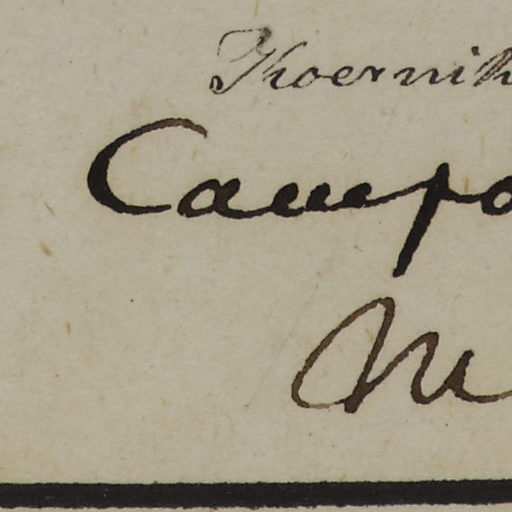 Koernik
Campa
M